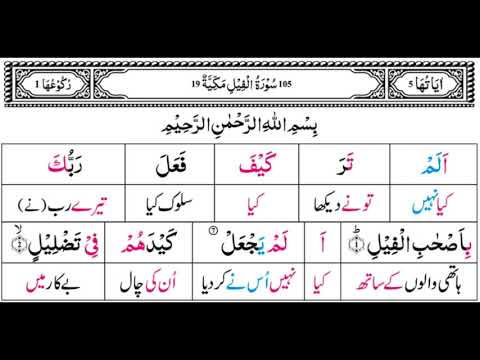 اٰيَاتُهَا 5 105 سُوْرَةُ الْفِيْلِ مَكِّيَّةٌ 19 رُكُوْعُهَا 1
بِسْمِ اللّٰهِ الرَّحْمٰنِ الرَّحِيْمِ
اَلَمْ تَرَ كَيْفَ فَعَلَ رَبُّكَ
کیا نہیں تو نے دیکھا کیا سلوک کیا تیرے رب (نے)
بِاَصْحٰبِ الْفِيْلِ ۱ اَ لَمْ يَجْعَلْ كَيْدَهُمْ فِيْ تَضْلِيْلٍ ۲
ہاتھی والوں کے ساتھ کیا نہیں اُس نے کر دیا اُن کی چال بے کار میں